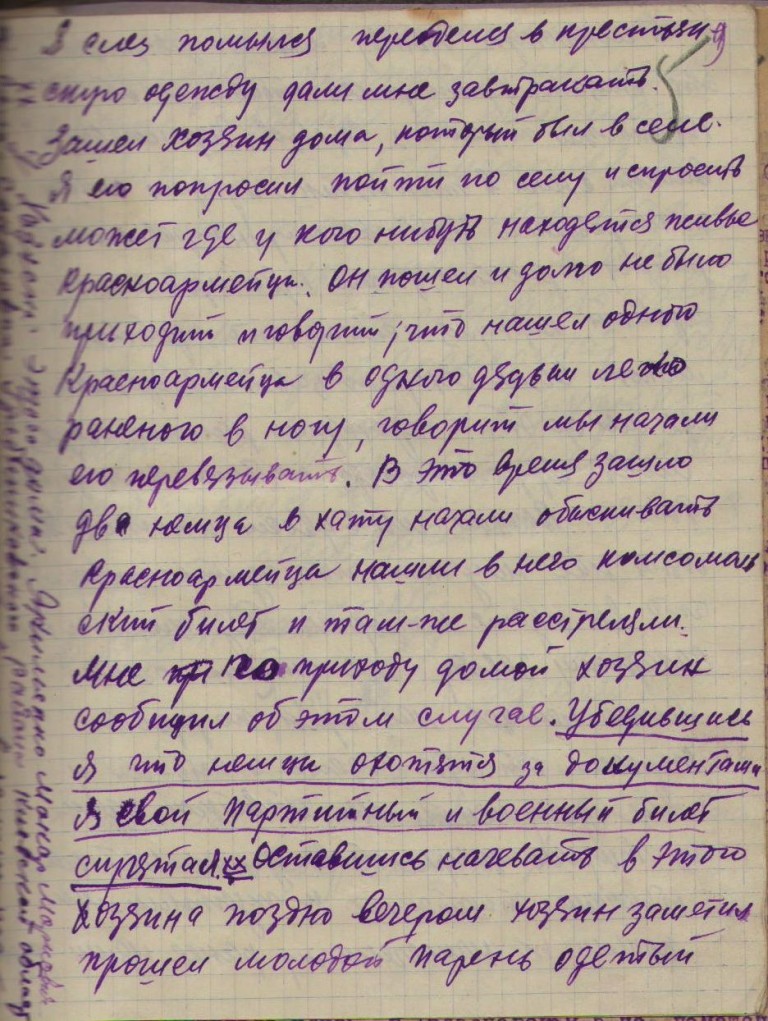 Я слез помылся переоделся в крестьян
скую одежду дали мне завтракать.
Зашел хозяин дома, который был в селе.
Я его попросил пойти по селу и спросить
может где у кого нибудь находятся живые
красноармейцы. Он пошел и долго не было
приходит и говорит, что нашел одного
Красноармейца в одного дядьки легко
раненого в ногу, говорит мы начали
его перевязывать. В это время зашло
два немца в хату начали обыскивать
красноармейца нашли в него комсомоль
ский билет и там-же расстреляли.
Мне по приходу домой хозяин
сообщил об этом случае. Убедившись
я что немцы охотятся за документами
я свой партийный и военный билет
спрятал. хх Оставшись начевать в этого
хозяина поздно вечером хозяин заметил
прошел молодой парень одетый
5
9
хх этого дома Яхименко Макар Маркович
района Киевской област